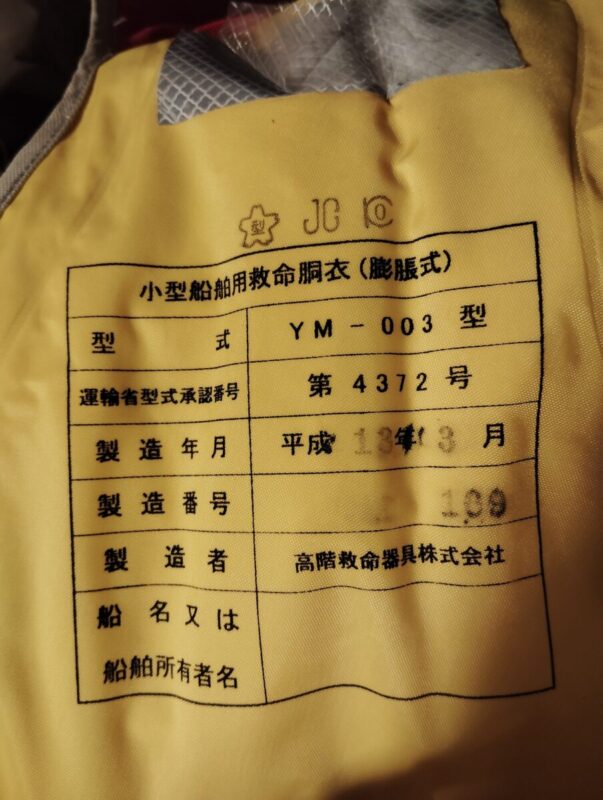 型 JG
小型船舶用救命胴衣(膨脹式)
型式 YM-003型
運輸省型式承認番号 第4372号
製造年月 平成 13年 3月
製造番号 109
製造者 高階救命器具株式会社
船名又は
船舶所有者名